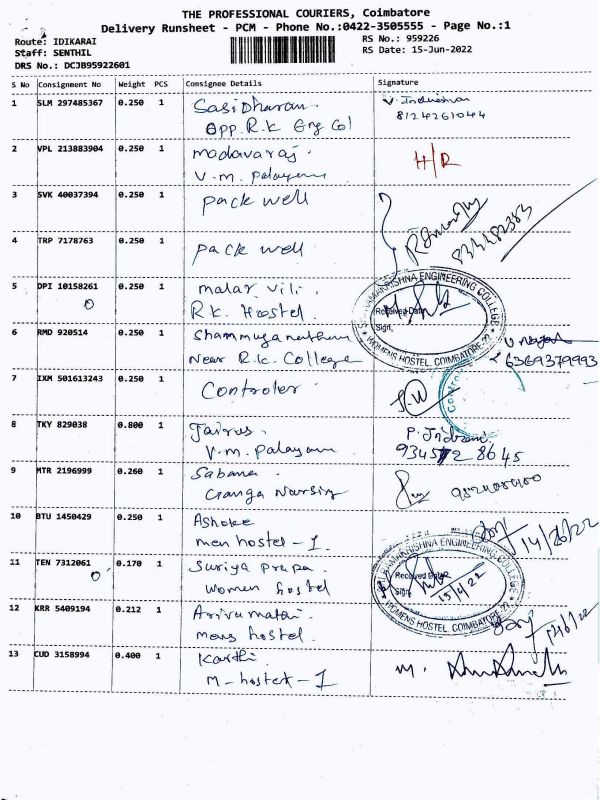 THE PROFESSIONAL COURIERS, Coimbatore
Delivery Runsheet - PCM - Phone No.:0422-3505555 - Page No.:1
Route: IDIKARAI
RS No.: 959226
Staff: SENTHIL
RS Date: 15-Jun-2022
DRS No.: DCJB95922601
S No Consignment No Weight PCS Consignee Details Signature
1 SLM 297485367 0.250 1 Sasidharan.
Opp. R.k Eng Col
8124261044
2 VPL 213883904 0.250 1 madavaraj.
V.m. palayam
H/R
3 SVK 40037394 0.250 1 pack well
4 TRP 7178763 0.250 1 pack well
5 DPI 10158261 0.250 1 malar vili.
R.k. Hostel.
SRI RAMAKRISHNA ENGINEERING COLLEGE
Received Date
Sign.
WOMENS HOSTEL, COIMBATORE-22
6 RMD 920514 0.250 1 Shanmuganathan
Near R.k. College
6369379993
7 IXM 501613243 0.250 1 Controler
8 TKY 829038 0.800 1 Jairus.
V.m. palayam
P. Indrani
9345728645
9 MTR 2196999 0.260 1 Sabana.
Ganga Nursing
10 BTU 1450429 0.250 1 Ashoke
men hostel - 1
11 TEN 7312061 0.170 1 Suriya prapa.
women hostel
SRI RAMAKRISHNA ENGINEERING COLLEGE
Received Date
Sign.
15/6/22
WOMENS HOSTEL, COIMBATORE-22
12 KRR 5409194 0.212 1 Arivumatai.
mens hostel.
13 CUD 3158994 0.400 1 Karthi.
M-hostel-1
M.